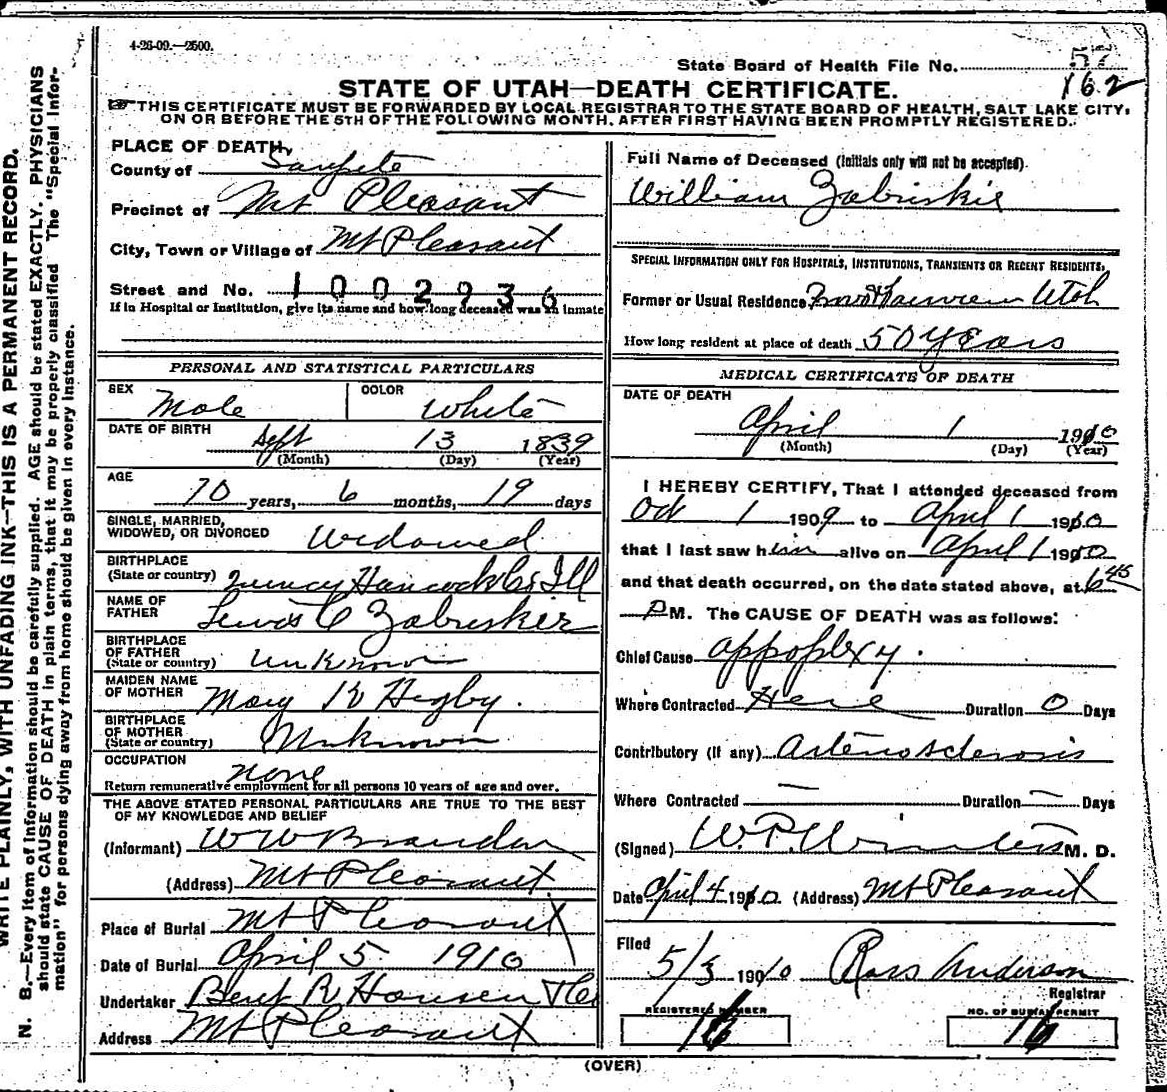 4-26-09.—2500.
State Board of Health File No. 57
162
STATE OF UTAH—DEATH CERTIFICATE.
THIS CERTIFICATE MUST BE FORWARDED BY LOCAL REGISTRAR TO THE STATE BOARD OF HEALTH, SALT LAKE CITY,
ON OR BEFORE THE 5TH OF THE FOLLOWING MONTH, AFTER FIRST HAVING BEEN PROMPTLY REGISTERED.
WRITE PLAINLY, WITH UNFADING INK—THIS IS A PERMANENT RECORD.
N. B.—Every item of information should be carefully supplied. AGE should be stated EXACTLY. PHYSICIANS
should state CAUSE OF DEATH in plain terms, that it may be properly classified The "Special Infor-
mation" for persons dying away from home should be given in every instance.
PLACE OF DEATH,
County of Sanpete
Precinct of Mt Pleasant
City, Town or Village of Mt Pleasant
Street and No. 1002936
If in Hospital or Institution, give its name and how long deceased was an inmate
PERSONAL AND STATISTICAL PARTICULARS
SEX Male COLOR White
DATE OF BIRTH
Sept 13 1839
(Month) (Day) (Year)
AGE
70 years, 6 months, 19 days
SINGLE, MARRIED,
WIDOWED, OR DIVORCED Widowed
BIRTHPLACE
(State or country) Quincy Hancock Co Ill
NAME OF
FATHER Lewis C Zabriskie
BIRTHPLACE
OF FATHER
(State or country) Unknown
MAIDEN NAME
OF MOTHER Mary K Higby.
BIRTHPLACE
OF MOTHER
(State or country) Unknown
OCCUPATION
none
Return remunerative employment for all persons 10 years of age and over.
THE ABOVE STATED PERSONAL PARTICULARS ARE TRUE TO THE BEST
OF MY KNOWLEDGE AND BELIEF
(Informant) W W Brandon
(Address) Mt Pleasant
Place of Burial Mt Pleasant
Date of Burial April 5 1910
Undertaker Bent R Hansen & Co
Address Mt Pleasant
Full Name of Deceased (Initials only will not be accepted).
William Zabriskie
SPECIAL INFORMATION ONLY FOR HOSPITALS, INSTITUTIONS, TRANSIENTS OR RECENT RESIDENTS.
Former or Usual Residence Utah
How long resident at place of death 50 Years
MEDICAL CERTIFICATE OF DEATH
DATE OF DEATH
April 1 1910
(Month) (Day) (Year)
I HEREBY CERTIFY, That I attended deceased from
Oct 1 1909 to April 1 1910
that I last saw him alive on April 1 1910
and that death occurred, on the date stated above, at 6 45
P M. The CAUSE OF DEATH was as follows:
Chief Cause appoplexy.
Where Contracted Here Duration 0 Days
Contributory (if any) Arteriosclerosis
Where Contracted — Duration — Days
(Signed) W. P. Winters M. D.
Date April 4 1910 (Address) Mt Pleasant
Filed
5/3 1910 Ross Anderson
Registrar
REGISTERED NUMBER
16
NO. OF BURIAL PERMIT
16
(OVER)